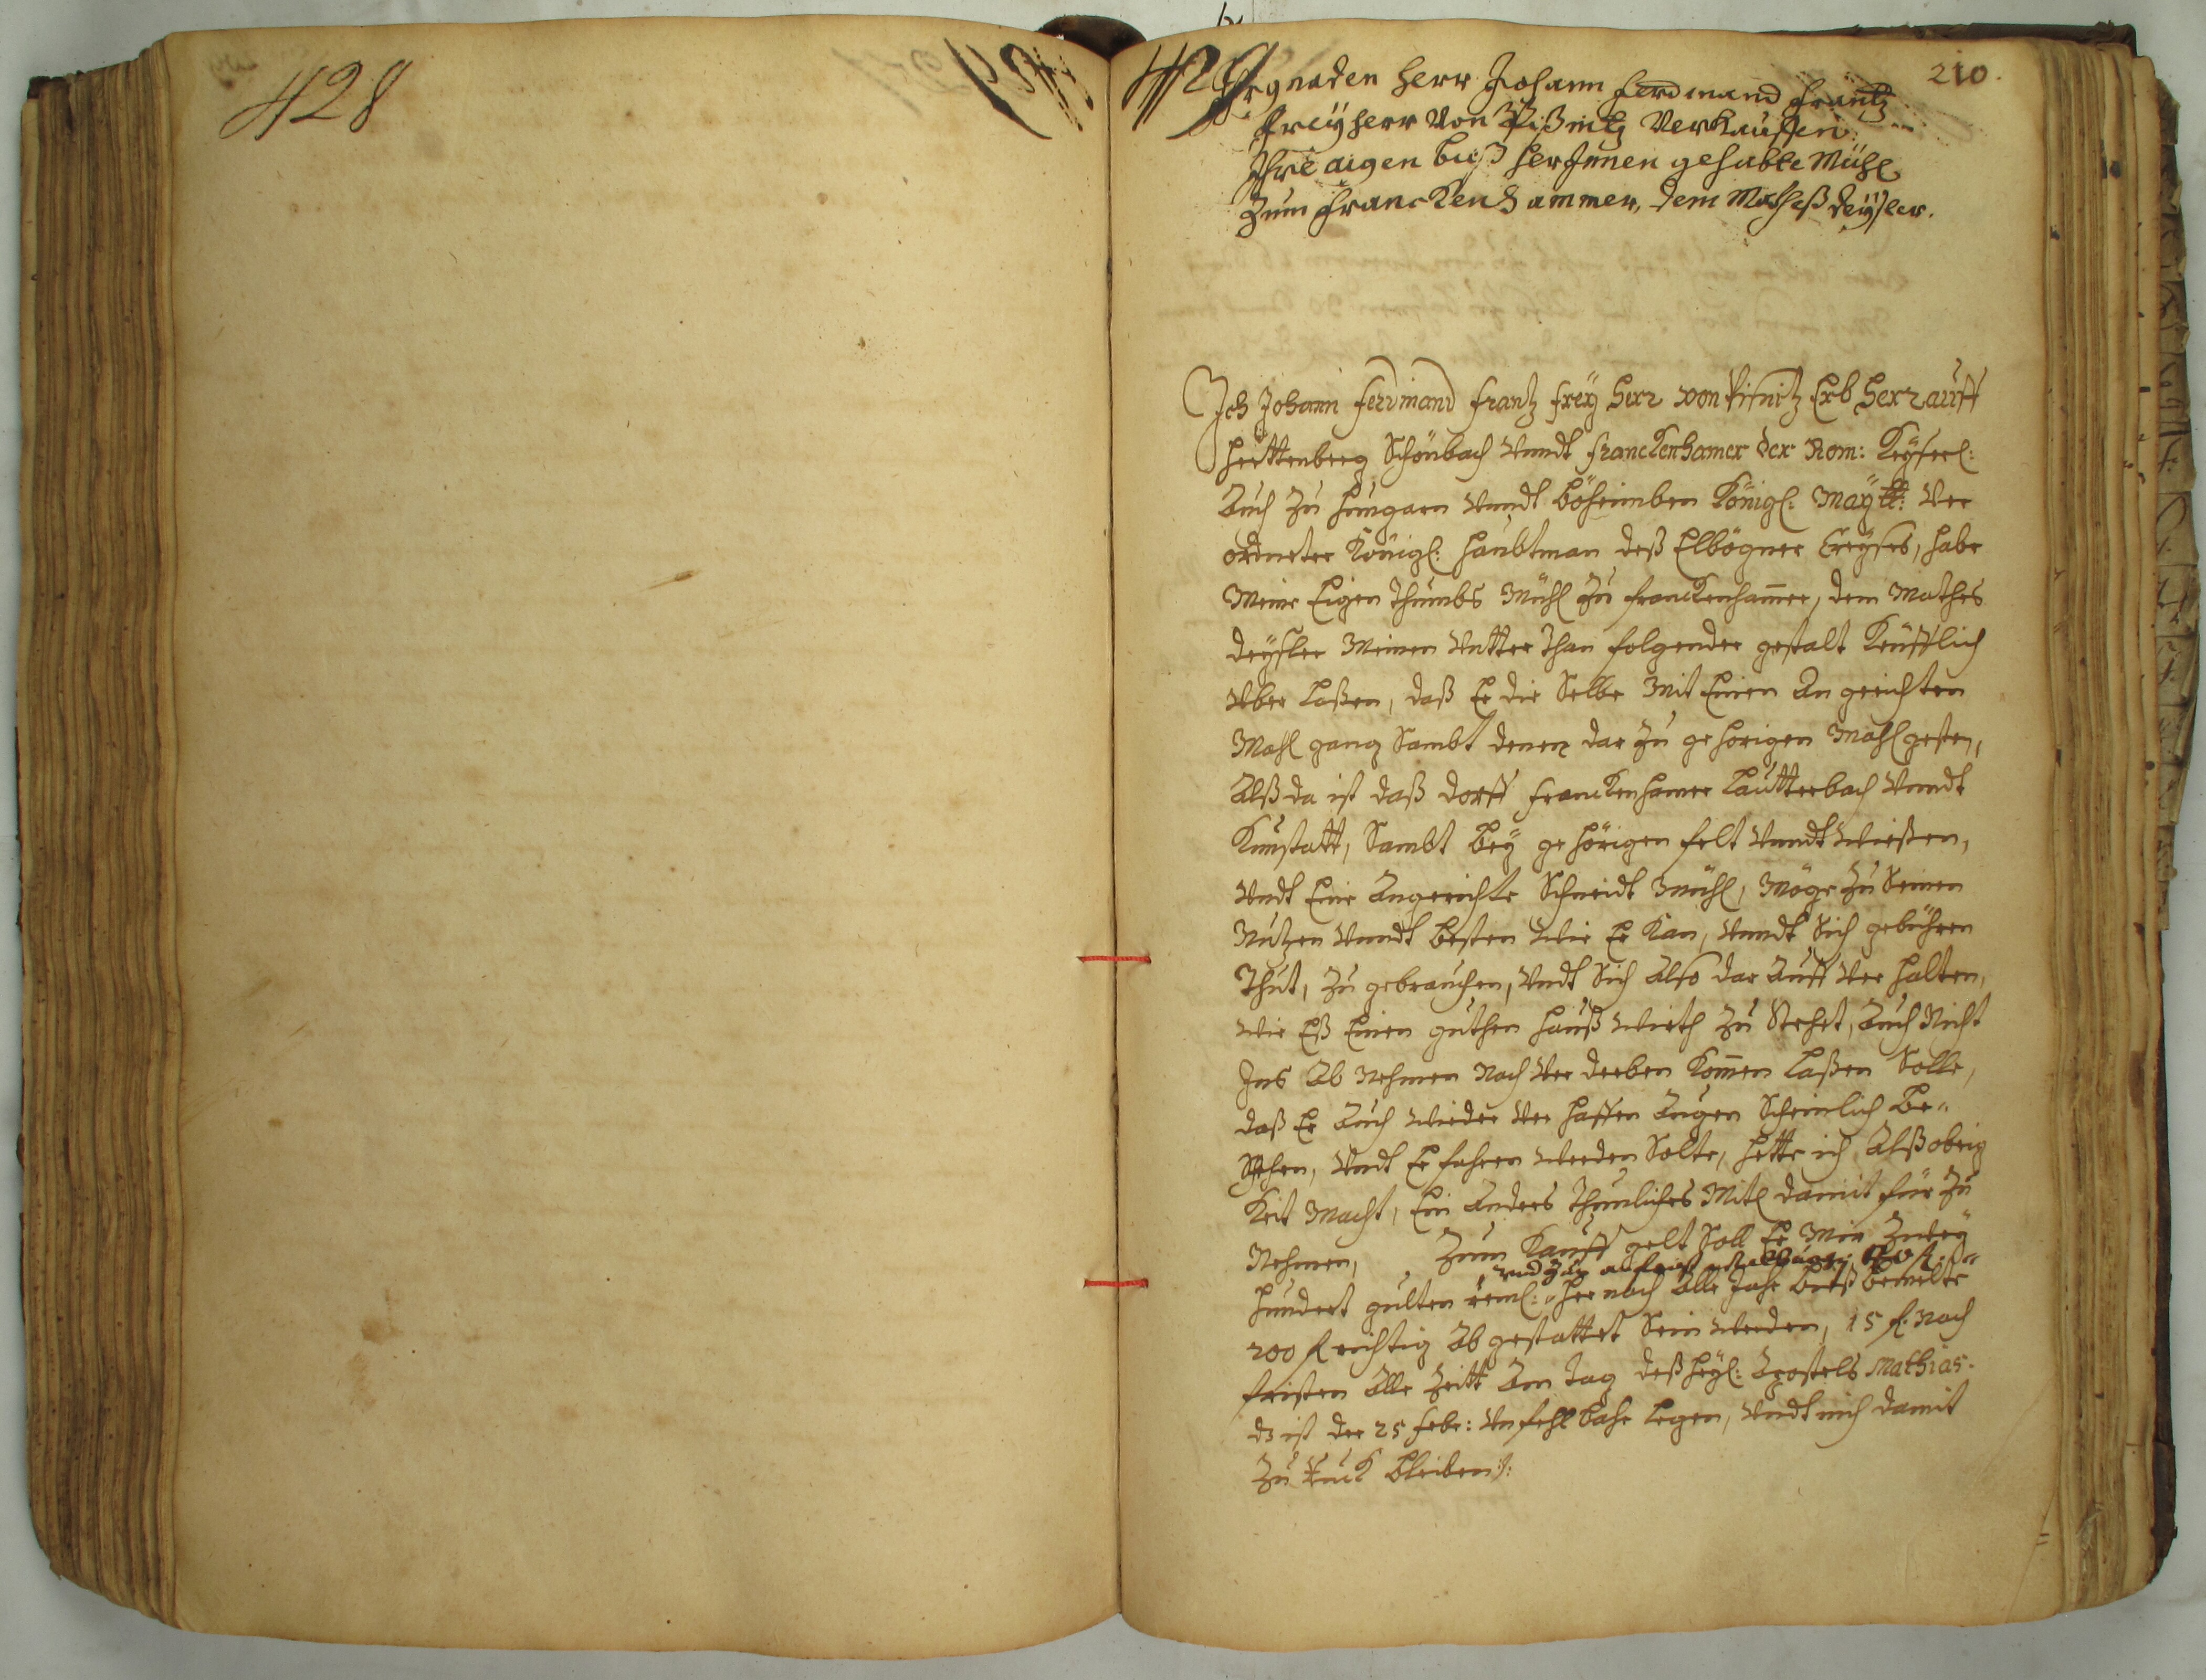 428
429
210.
Ihr gnaden Herr Johann Ferdinand Frantz
Freyherr Von Pißnitz Verkauffen
Ihre aigen biß her Innen gehabte Mühl
Zum Franckenhammer, dem Matheß deyßler.
Ich Johann Ferdinand Frantz Frey Herr von Pisnitz Erb Herr auff
Herttenberg Schönbach Vundt Franckenhamer der Rom: Keyserl:
Auch Zu Hungarn Vundt Böheimben Königl: Maytt: Ver
ordneter Königl: Haubtman deß Elbögner Creyses, habe
Meine Eigen Thumbs Mühl Zu Franckenhamer, dem Mathes
deyßler Meinen Vntter Than folgender gestalt Keufflich
Vber laßen, daß Er die Selbe Mit Einen An gerichten
Mahl gang Sambt denen dar Zu gehörigen Mahl gesten,
Alß da ist daß dorff Franckenhamer Lautterbach Vundt
Kunstatt, Sambt Bey ge hörigen felt Vundt wießen,
Vndt Eine Angerichte Schneidt Mühl, Möge Zu Seinen
Nutzen Vundt besten wie Er Kan, Vundt Sich gebühren
Thut, Zu gebrauchen, Vndt Sich Also dar Auff Ver halten,
wie Eß Einen guthen Hauß wirth Zu Stehet, Auch Nicht
Ins Ab Nehmen Noch Ver derben Komen laßen Solle,
daß Er Auch wieder Ver hoffen Augen Scheinlich Be„
Sehen, Vndt Er fahren werden Solte, hette ich Alß obrig
Keit Macht, Ein Anders Thunliches Mitl damit für Zu
Nehmen, Zum Kauff gelt Soll Er Mir Zwey
hundert gulten reinl: her nach Alle Jahr biß bemelte
200 fl richtig Ab gestattet Sein werden, 15 fl. Nach
fristen Alle Zeitt Am Tag deß Heyl: Apostels Mathias.
dz ist der 25 Febr: Vnfehlbahr legen, Vndt nich damit
Zu Ruck bleiben.